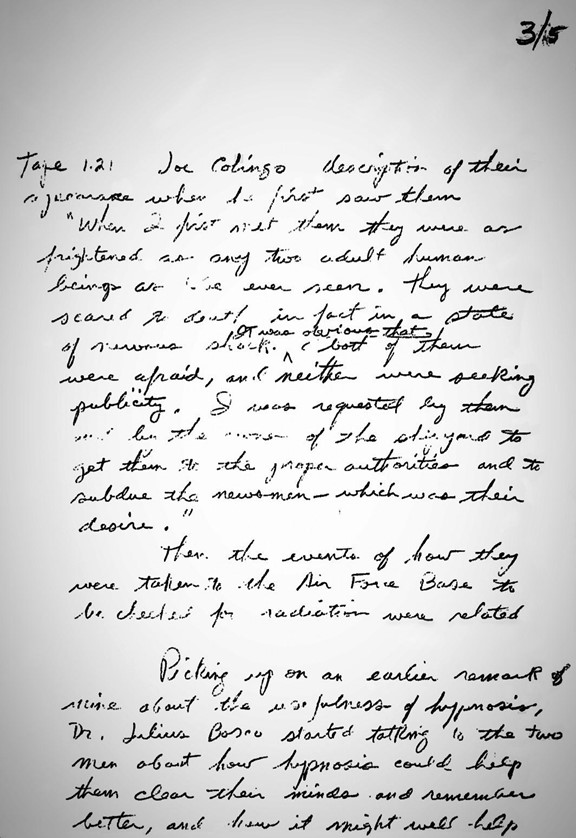 3/15
Tape 1.21 Joe Colingo description of their
appearance when he first saw them
"When I first met them they were as
frightened as any two adult human
beings as I've ever seen. They were
scared to death in fact in a state
of nervous shock. It was obvious that both of them
were afraid, and neither were seeking
publicity. I was requested by them
and by the of the shipyard to
get them to the proper authorities and to
subdue the newsmen — which was their
desire."
Then the events of how they
were taken to the Air Force Base to
be checked for radiation were related
Picking up on an earlier remark of
mine about the usefulness of hypnosis,
Dr. Julius Bosco started talking to the two
men about how hypnosis could help
them clear their minds and remember
better, and how it might well help